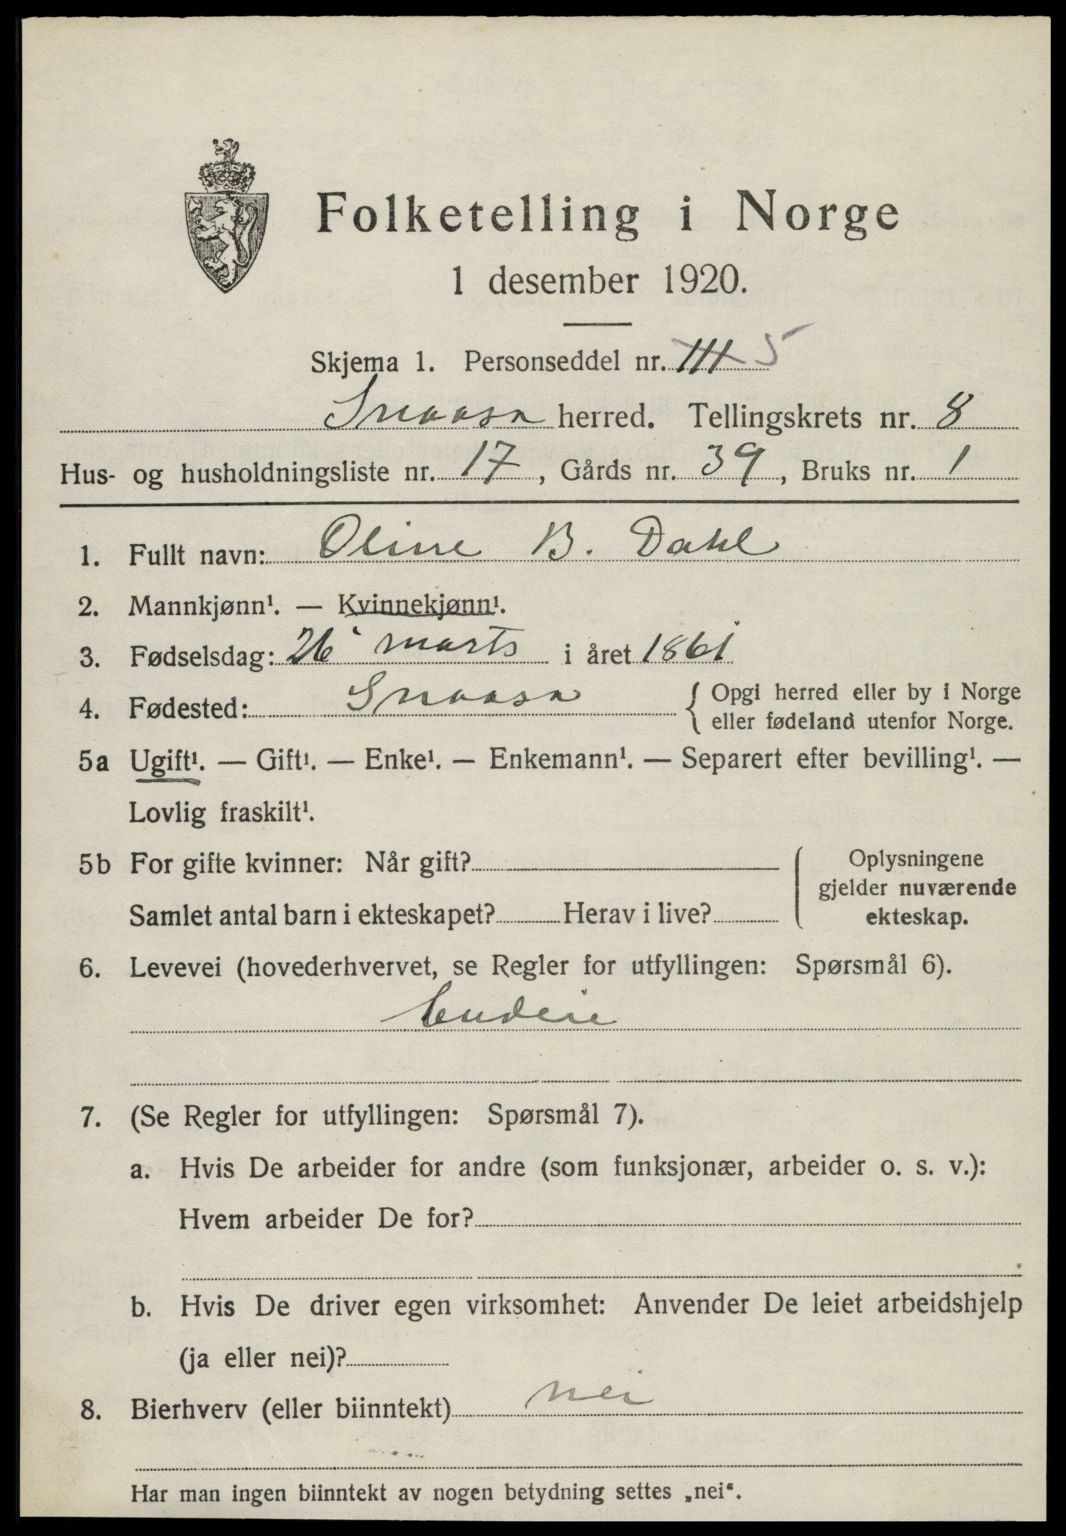 Folketelling i Norge
1 desember 1920.
Skjema 1. Personseddel nr. III 5
Snaasa herred. Tellingskrets nr. 8
Hus- og husholdningsliste nr. 17, Gårds nr. 39, Bruks nr. 1
1. Fullt navn: Oline B. Dahl
2. Mannkjønn¹. — Kvinnekjønn¹.
3. Fødselsdag: 26 marts i året 1861
4. Fødested: Snaasa { Opgi herred eller by i Norge
eller fødeland utenfor Norge.
5a Ugift¹. — Gift¹. — Enke¹. — Enkemann¹. — Separert efter bevilling¹. —
Lovlig fraskilt¹.
5b For gifte kvinner: Når gift? { Oplysningene
gjelder nuværende
Samlet antal barn i ekteskapet? Herav i live? ekteskap.
6. Levevei (hovederhvervet, se Regler for utfyllingen: Spørsmål 6).
7. (Se Regler for utfyllingen: Spørsmål 7).
a. Hvis De arbeider for andre (som funksjonær, arbeider o. s. v.):
Hvem arbeider De for?
b. Hvis De driver egen virksomhet: Anvender De leiet arbeidshjelp
(ja eller nei)?
8. Bierhverv (eller biinntekt) nei
Har man ingen biinntekt av nogen betydning settes „nei“.